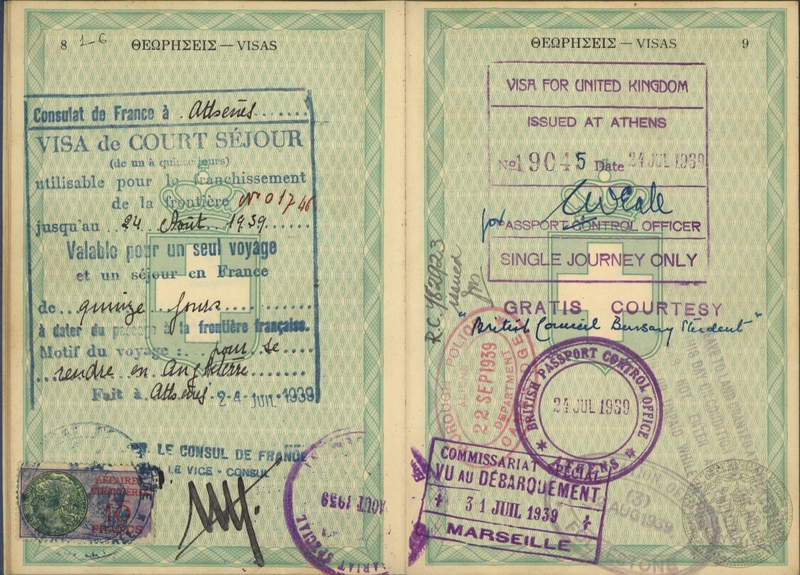 8 1-6 ΘΕΩΡΗΣΕΙΣ — VISAS
Consulat de France à Athènes
VISA de COURT SÉJOUR
(de un à quinze jours)
utilisable pour le franchissement
de la frontière Nº 01746
jusqu'au 24 Août 1939.
Valable pour un seul voyage
et un séjour en France
de quinze jours
à dater du passage à la frontière française.
Motif du voyage : pour se
rendre en Angleterre
Fait à Athènes 24 JUIL 1939
LE CONSUL DE FRANCE
LE VICE-CONSUL
AFFAIRES
FRANCS
AOUT 1939
SPÉCIAL
ΘΕΩΡΗΣΕΙΣ — VISAS 9
VISA FOR UNITED KINGDOM
ISSUED AT ATHENS
No 19045 Date 24 JUL 1939
for PASSPORT CONTROL OFFICER
SINGLE JOURNEY ONLY
GRATIS COURTESY
"British Council Bursary Student"
R.C. issued
22 SEP 1939
DEPARTMENT
BRITISH PASSPORT CONTROL OFFICE
24 JUL 1939
ATHENS
COMMISSARIAT SPÉCIAL
VU AU DÉBARQUEMENT
31 JUIL 1939
MARSEILLE
(3)
AUG 1939